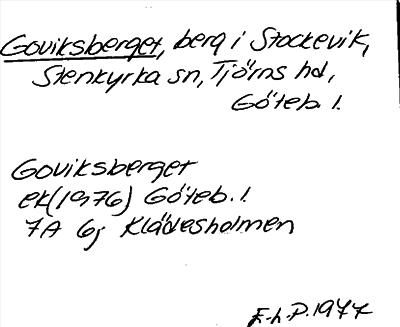 Goviksberget, berg i Stockevik,
Stenkyrka sn, Tjörns hd,
Göteb. l.
Goviksberget
ek(1976) Göteb. l.
7A 6j Klädesholmen
E-h. P. 1977